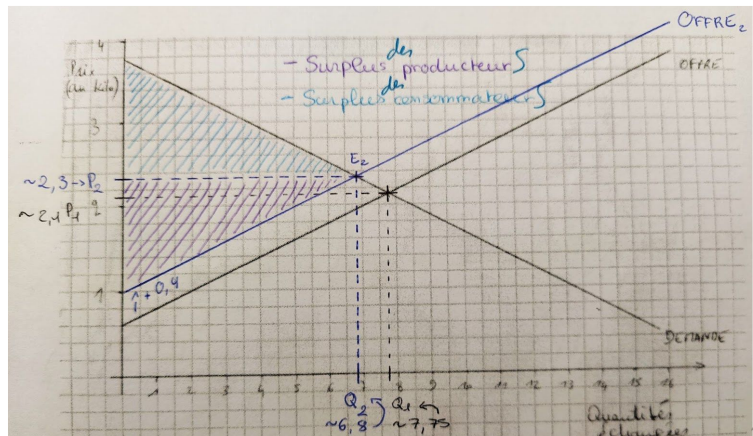 OFFRE₂
4
Prix
(au kilo)
- Surplus des producteurs
OFFRE
- Surplus des consommateurs
3
E₂
~2,3 → P₂
~2,1 P₁ 2
1
↑ + 0,4
DEMANDE
1 2 3 4 5 6 7 8 9 10 11 12 13 14 15 16
Q₂ Q₁
~6,8 ~7,75
Quantités
échangées